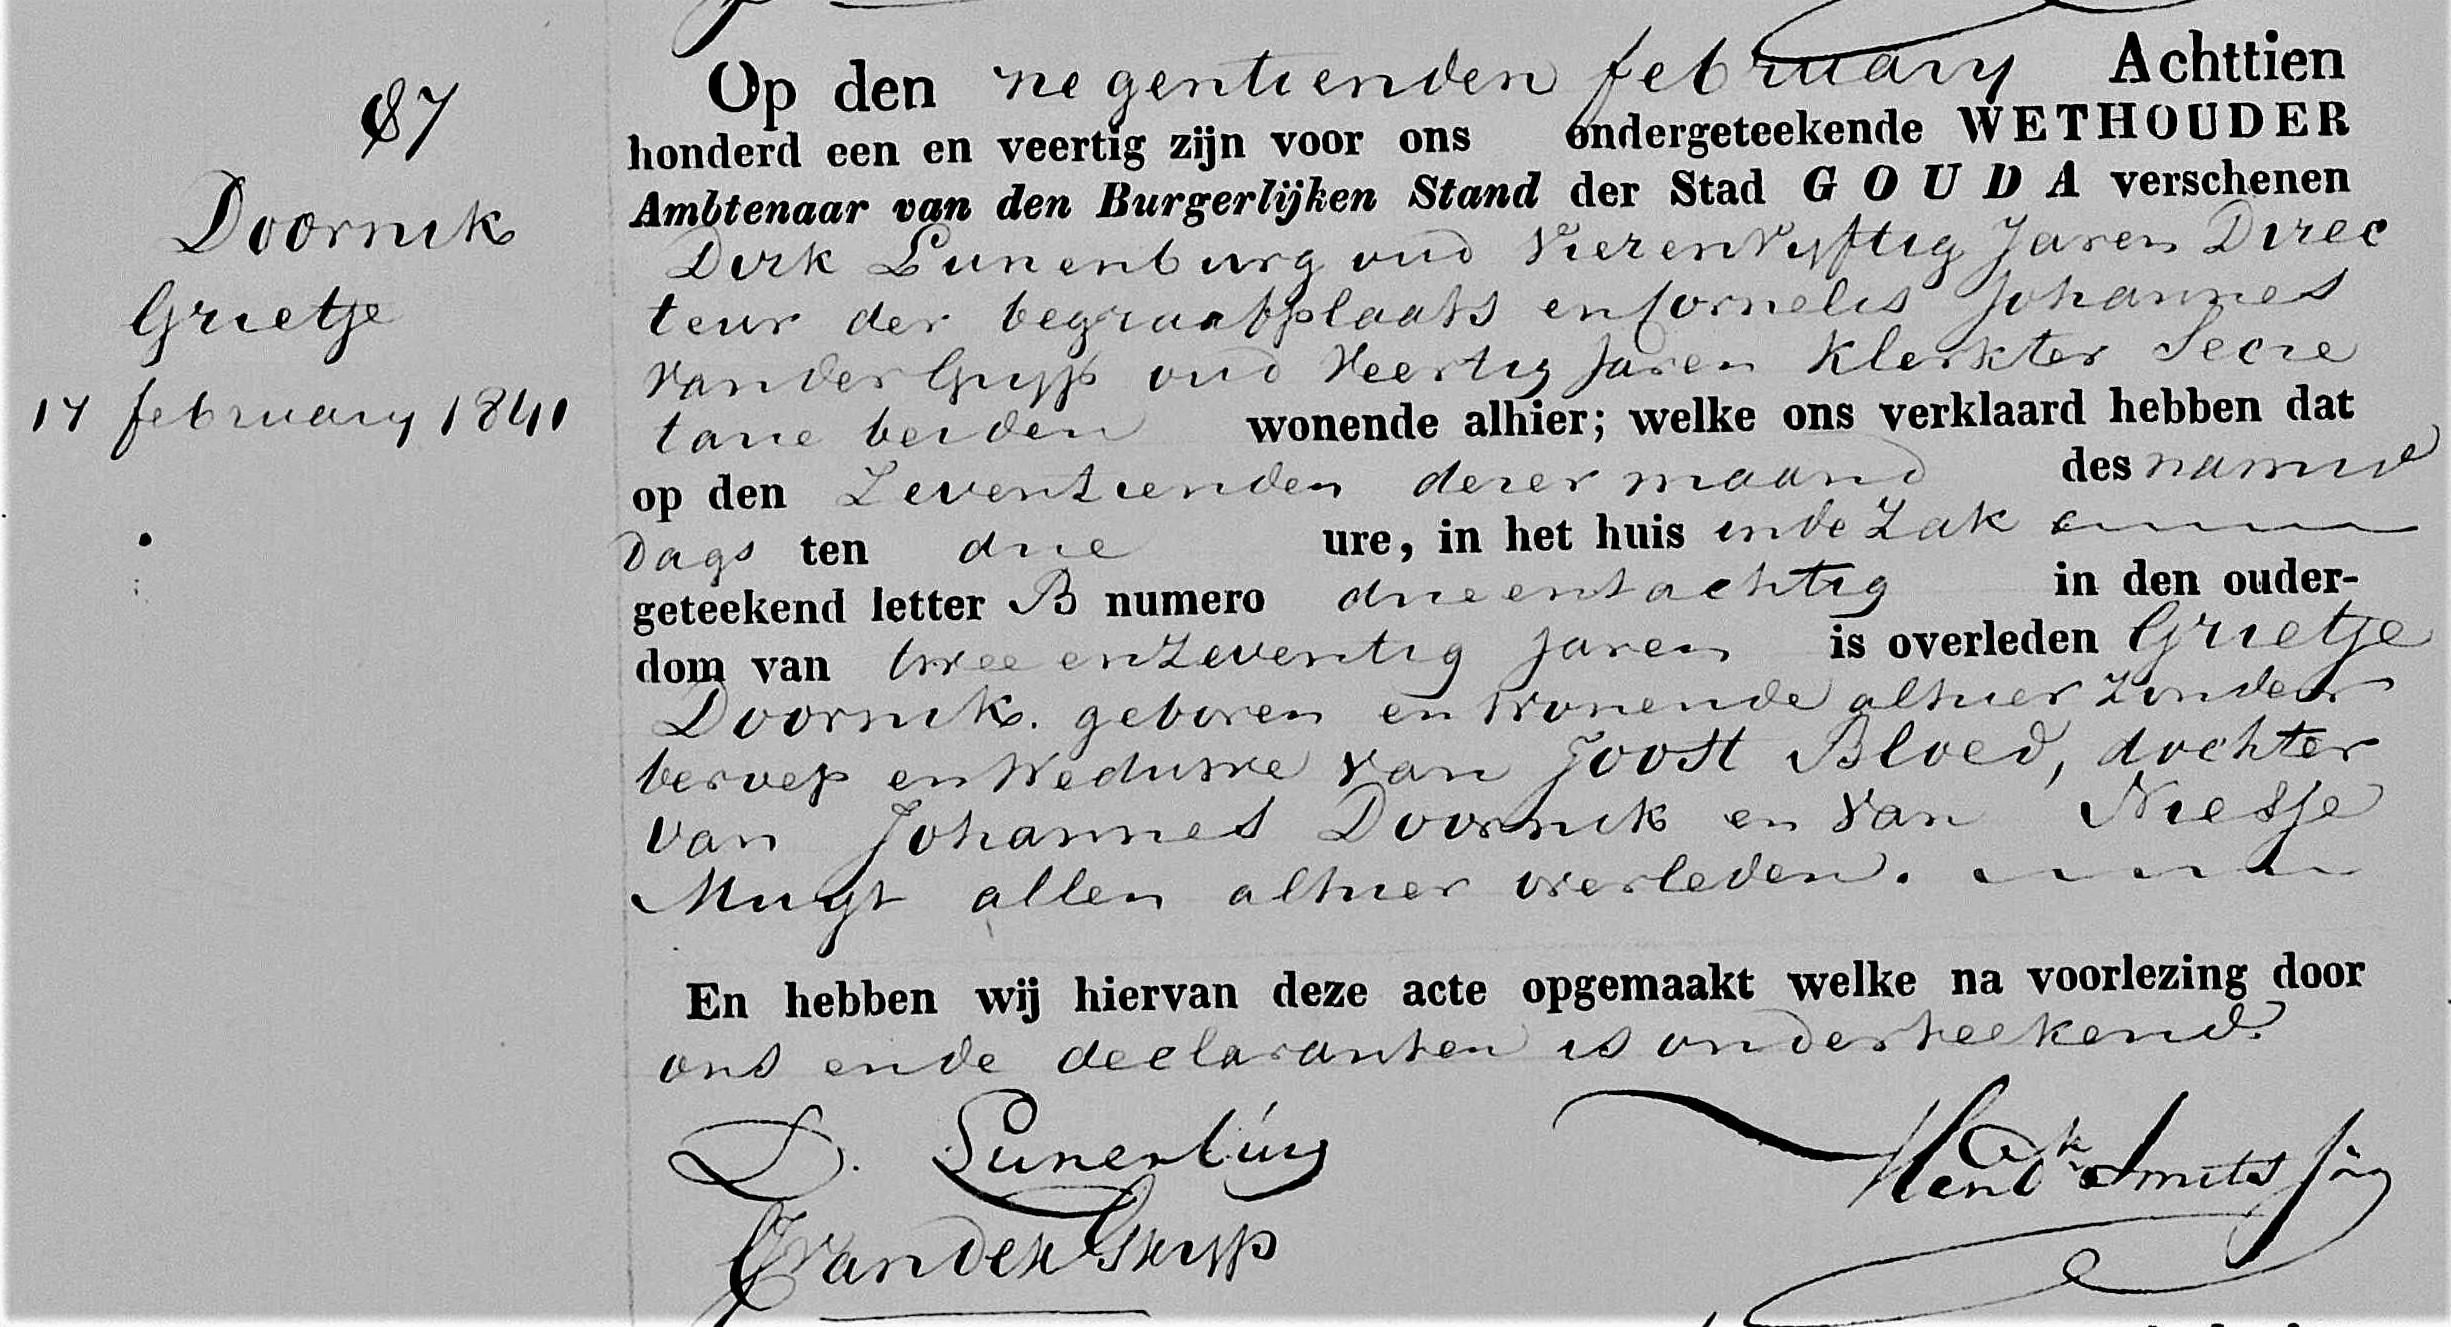 87
Doornik
Grietje
17 february 1841
Op den negentienden february Achttien
honderd een en veertig zijn voor ons ondergeteekende WETHOUDER
Ambtenaar van den Burgerlijken Stand der Stad GOUDA verschenen
Dirk Lunenburg oud Vierenvyftig Jaren Direc
teur der begraafplaats en Cornelis Johannes
van der Gryp oud Veertig Jaren Klerk ter Secre
tarie beiden wonende alhier; welke ons verklaard hebben dat
op den Zeventienden dezer maand des namid
dags ten drie ure, in het huis in de Zak
geteekend letter B numero drieentachtig in den ouder-
dom van twee en Zeventig Jaren is overleden Grietje
Doornik. geboren en Wonende alhier Zonder
beroep en Weduwe van Joost Bloed, dochter
van Johannes Doornik en van Niesje
Mugt allen alhier overleden.
En hebben wij hiervan deze acte opgemaakt welke na voorlezing door
ons en de declaranten is onderteekend.
D. Lunenburg
Hendk Smits
van der Gryp